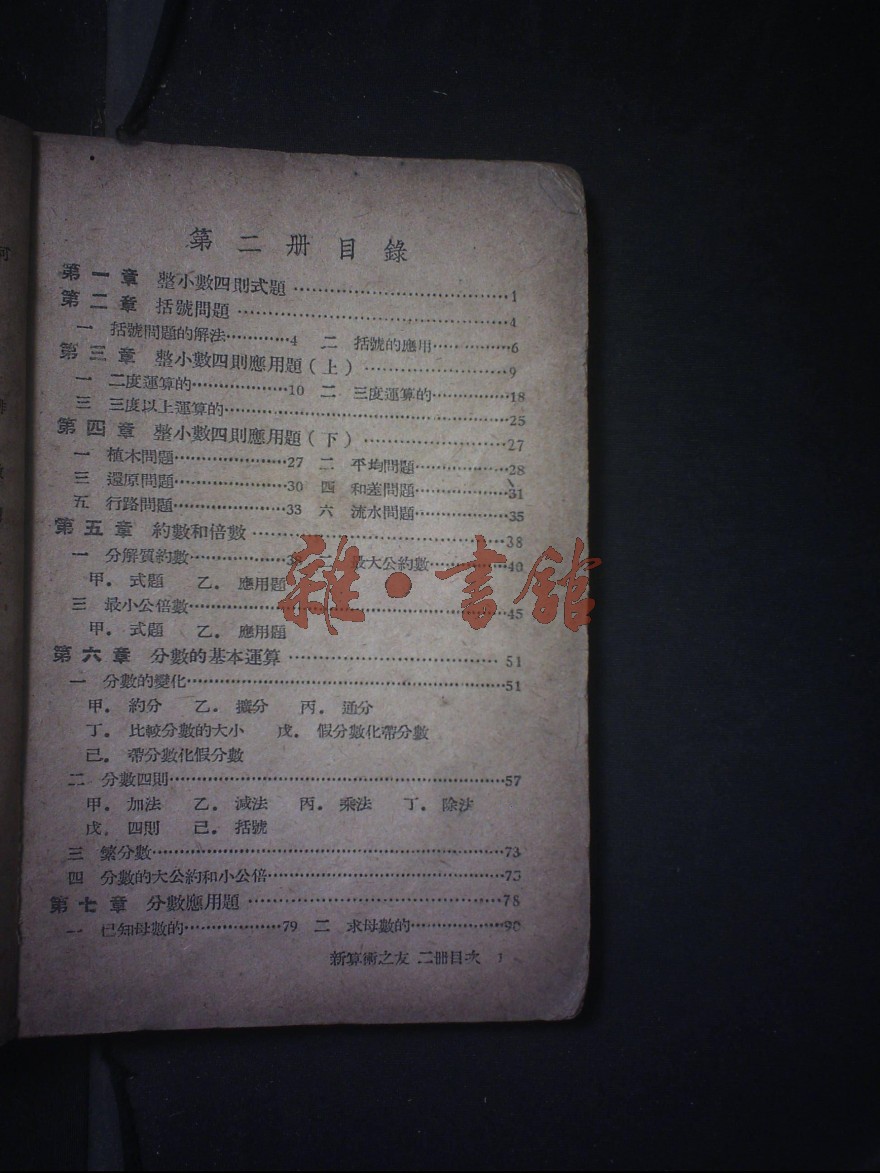 第二册目錄
第一章 整小數四則式題…………………………1
第二章 括號問題…………………………………4
一 括號問題的解法…………4 二 括號的應用…………6
第三章 整小數四則應用題(上)…………………9
一 二度運算的………………10 二 三度運算的…………18
三 三度以上運算的………………………………25
第四章 整小數四則應用題(下)…………………27
一 植木問題…………………27 二 平均問題……………28
三 還原問題…………………30 四 和差問題……………31
五 行路問題…………………33 六 流水問題……………35
第五章 約數和倍數………………………………38
一 分解質約數………………38 二 最大公約數…………40
甲. 式題 乙. 應用題
三 最小公倍數……………………………………45
甲. 式題 乙. 應用題
第六章 分數的基本運算…………………………51
一 分數的變化……………………………………51
甲. 約分 乙. 擴分 丙. 通分
丁. 比較分數的大小 戊. 假分數化帶分數
己. 帶分數化假分數
二 分數四則………………………………………57
甲. 加法 乙. 減法 丙. 乘法 丁. 除法
戊. 四則 己. 括號
三 繁分數…………………………………………73
四 分數的大公約和小公倍………………………75
第七章 分數應用題………………………………78
一 已知母數的………………79 二 求母數的……………90
新算術之友 二冊目次 1
雜·書館